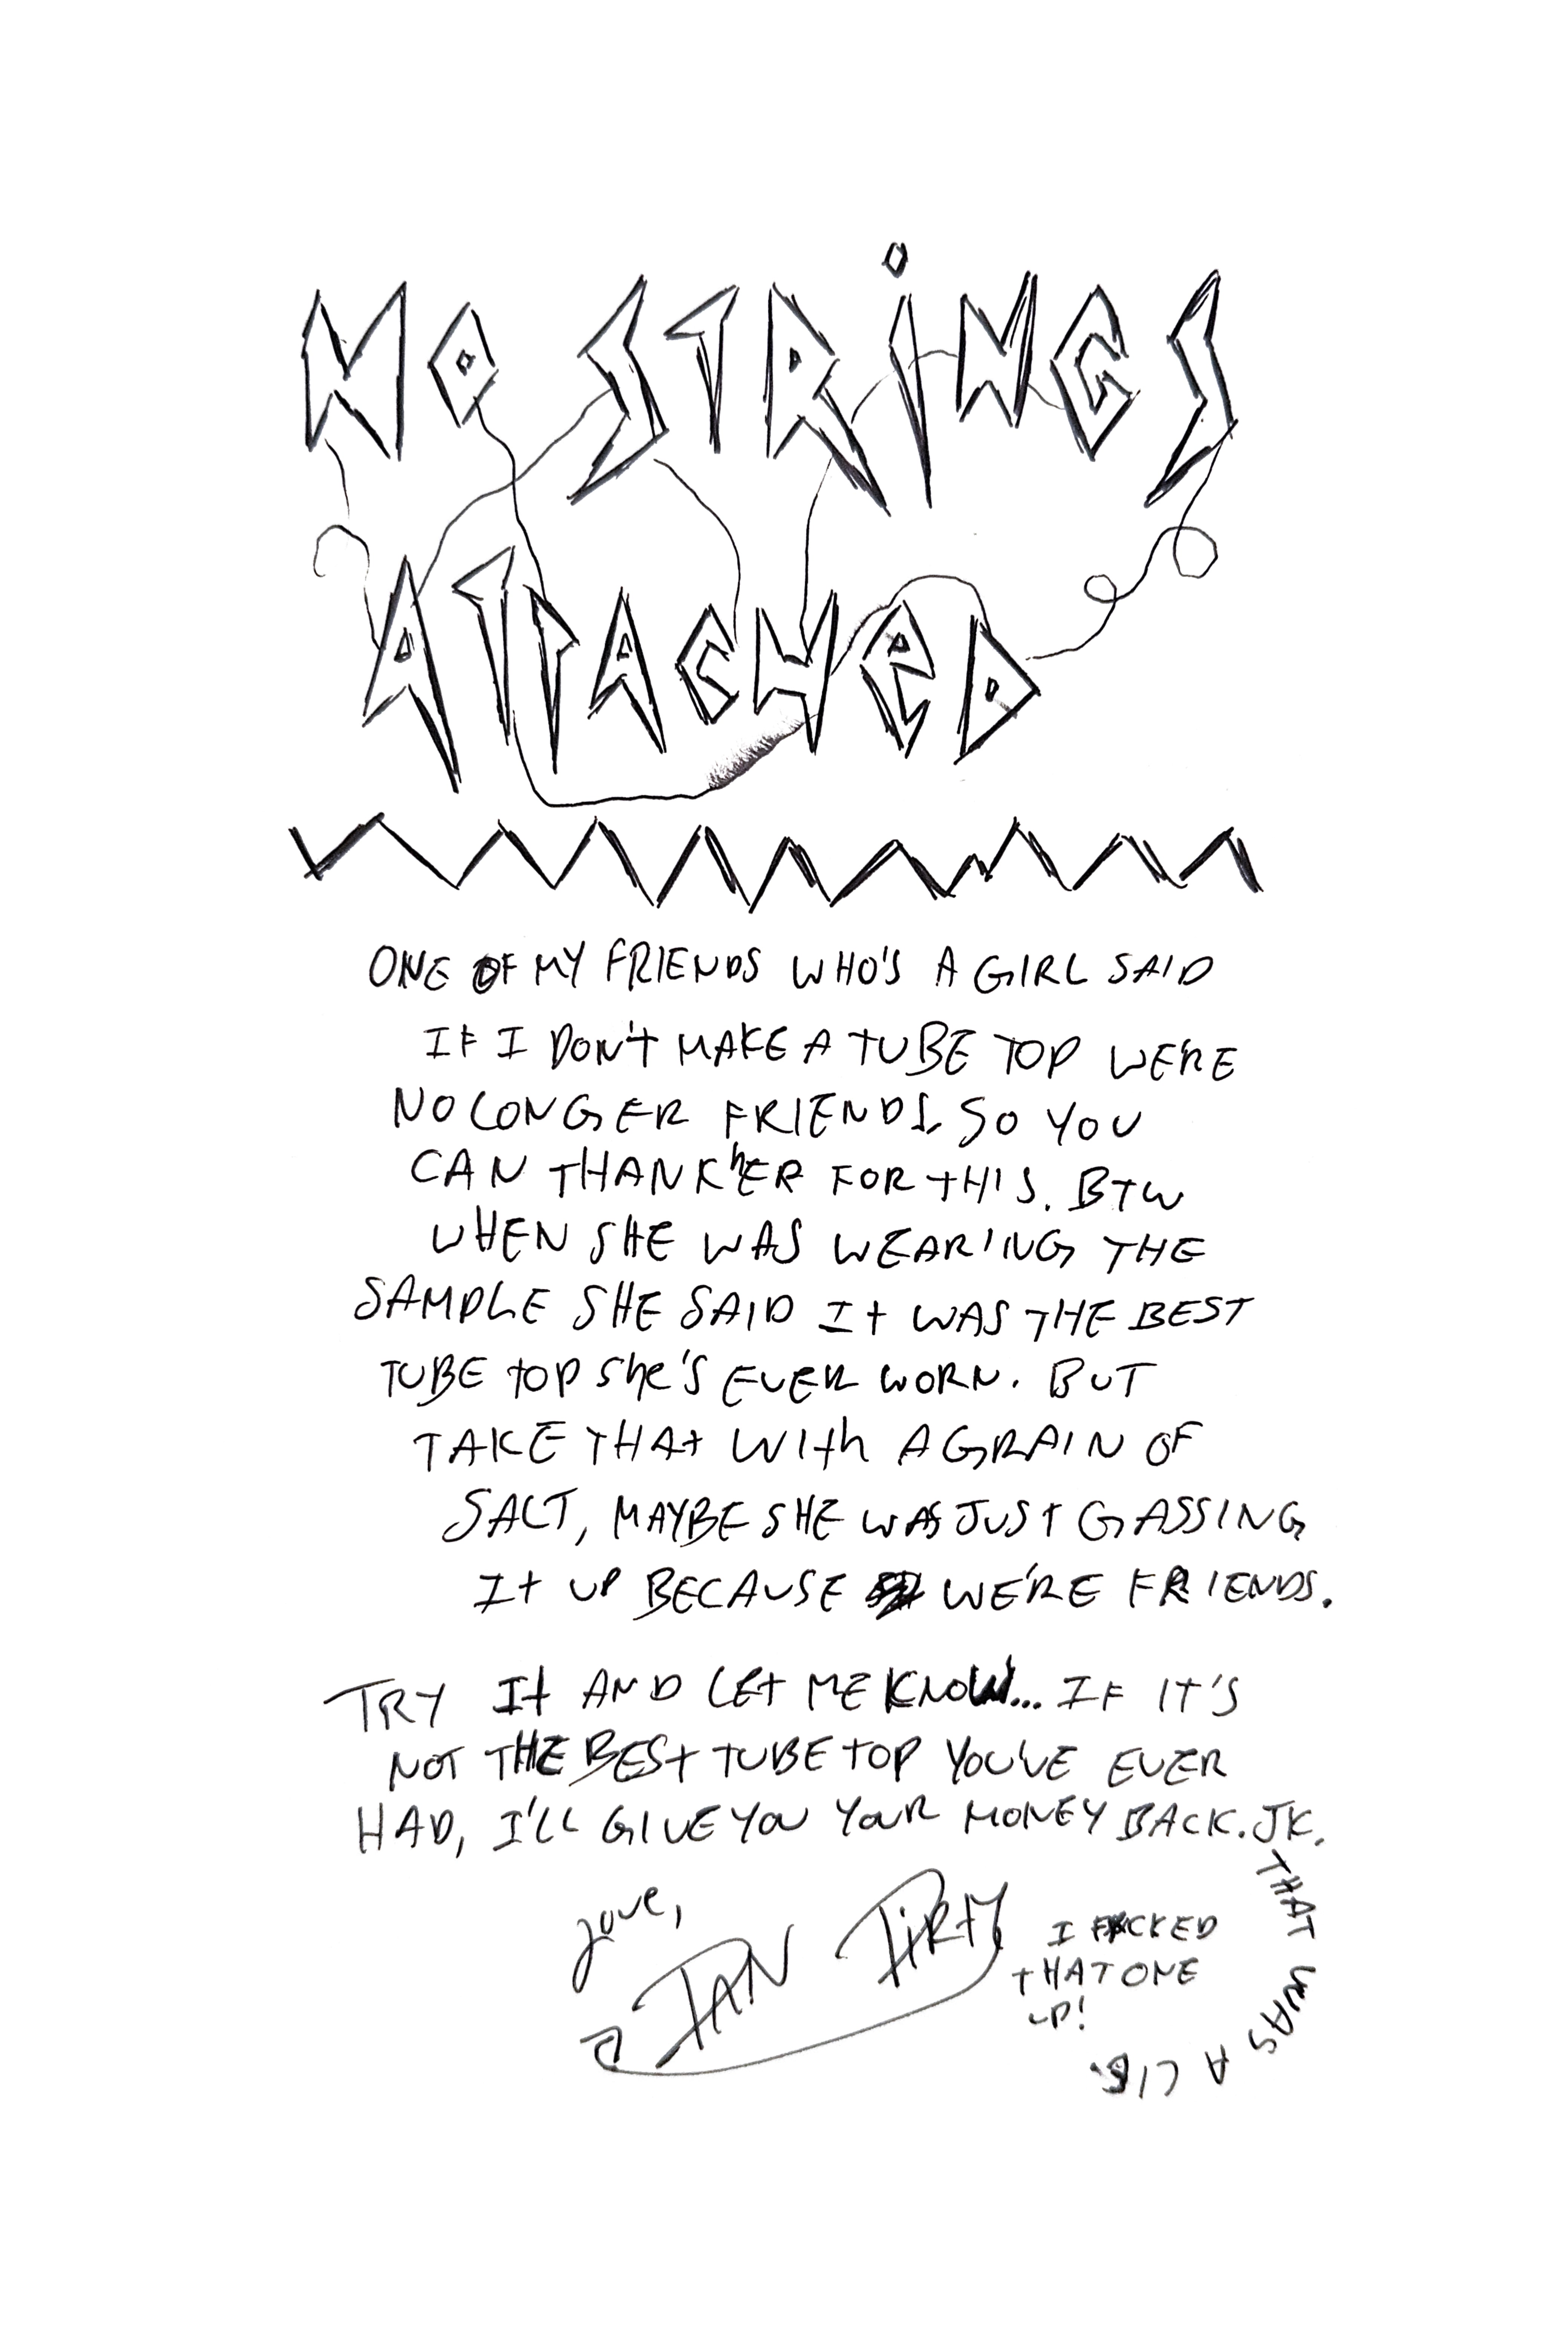 NO STRiNGS
ATTACHeD
ONE OF MY FRIENDS WHO'S A GIRL SAID
IF I DON't MAKE A TUBE TOP WE'RE
NO LONGER FRIENDS. SO YOU
CAN THANK hER FOR THIS. BTW
WHEN SHE WAS WEARING THE
SAMPLE SHE SAID It WAS THE BEST
TUBE tOP She'S EVER WORN. BUT
TAKE THAt WIth A GRAIN OF
SALT, MAYBE SHE WAS JUSt GASSING
It UP BECAUSE WE'RE FRIENDS.
TRY It AND LEt ME KNOW... IF IT'S
NOT THE BESt TUBE tOP YOU'VE EVER
HAD, I'LL GIVE YOU YOUR MONEY BACK. JK.
THAT WAS A LIE.
Love,
IAN DiRtY
I FXCKED
tHAT ONE
UP!